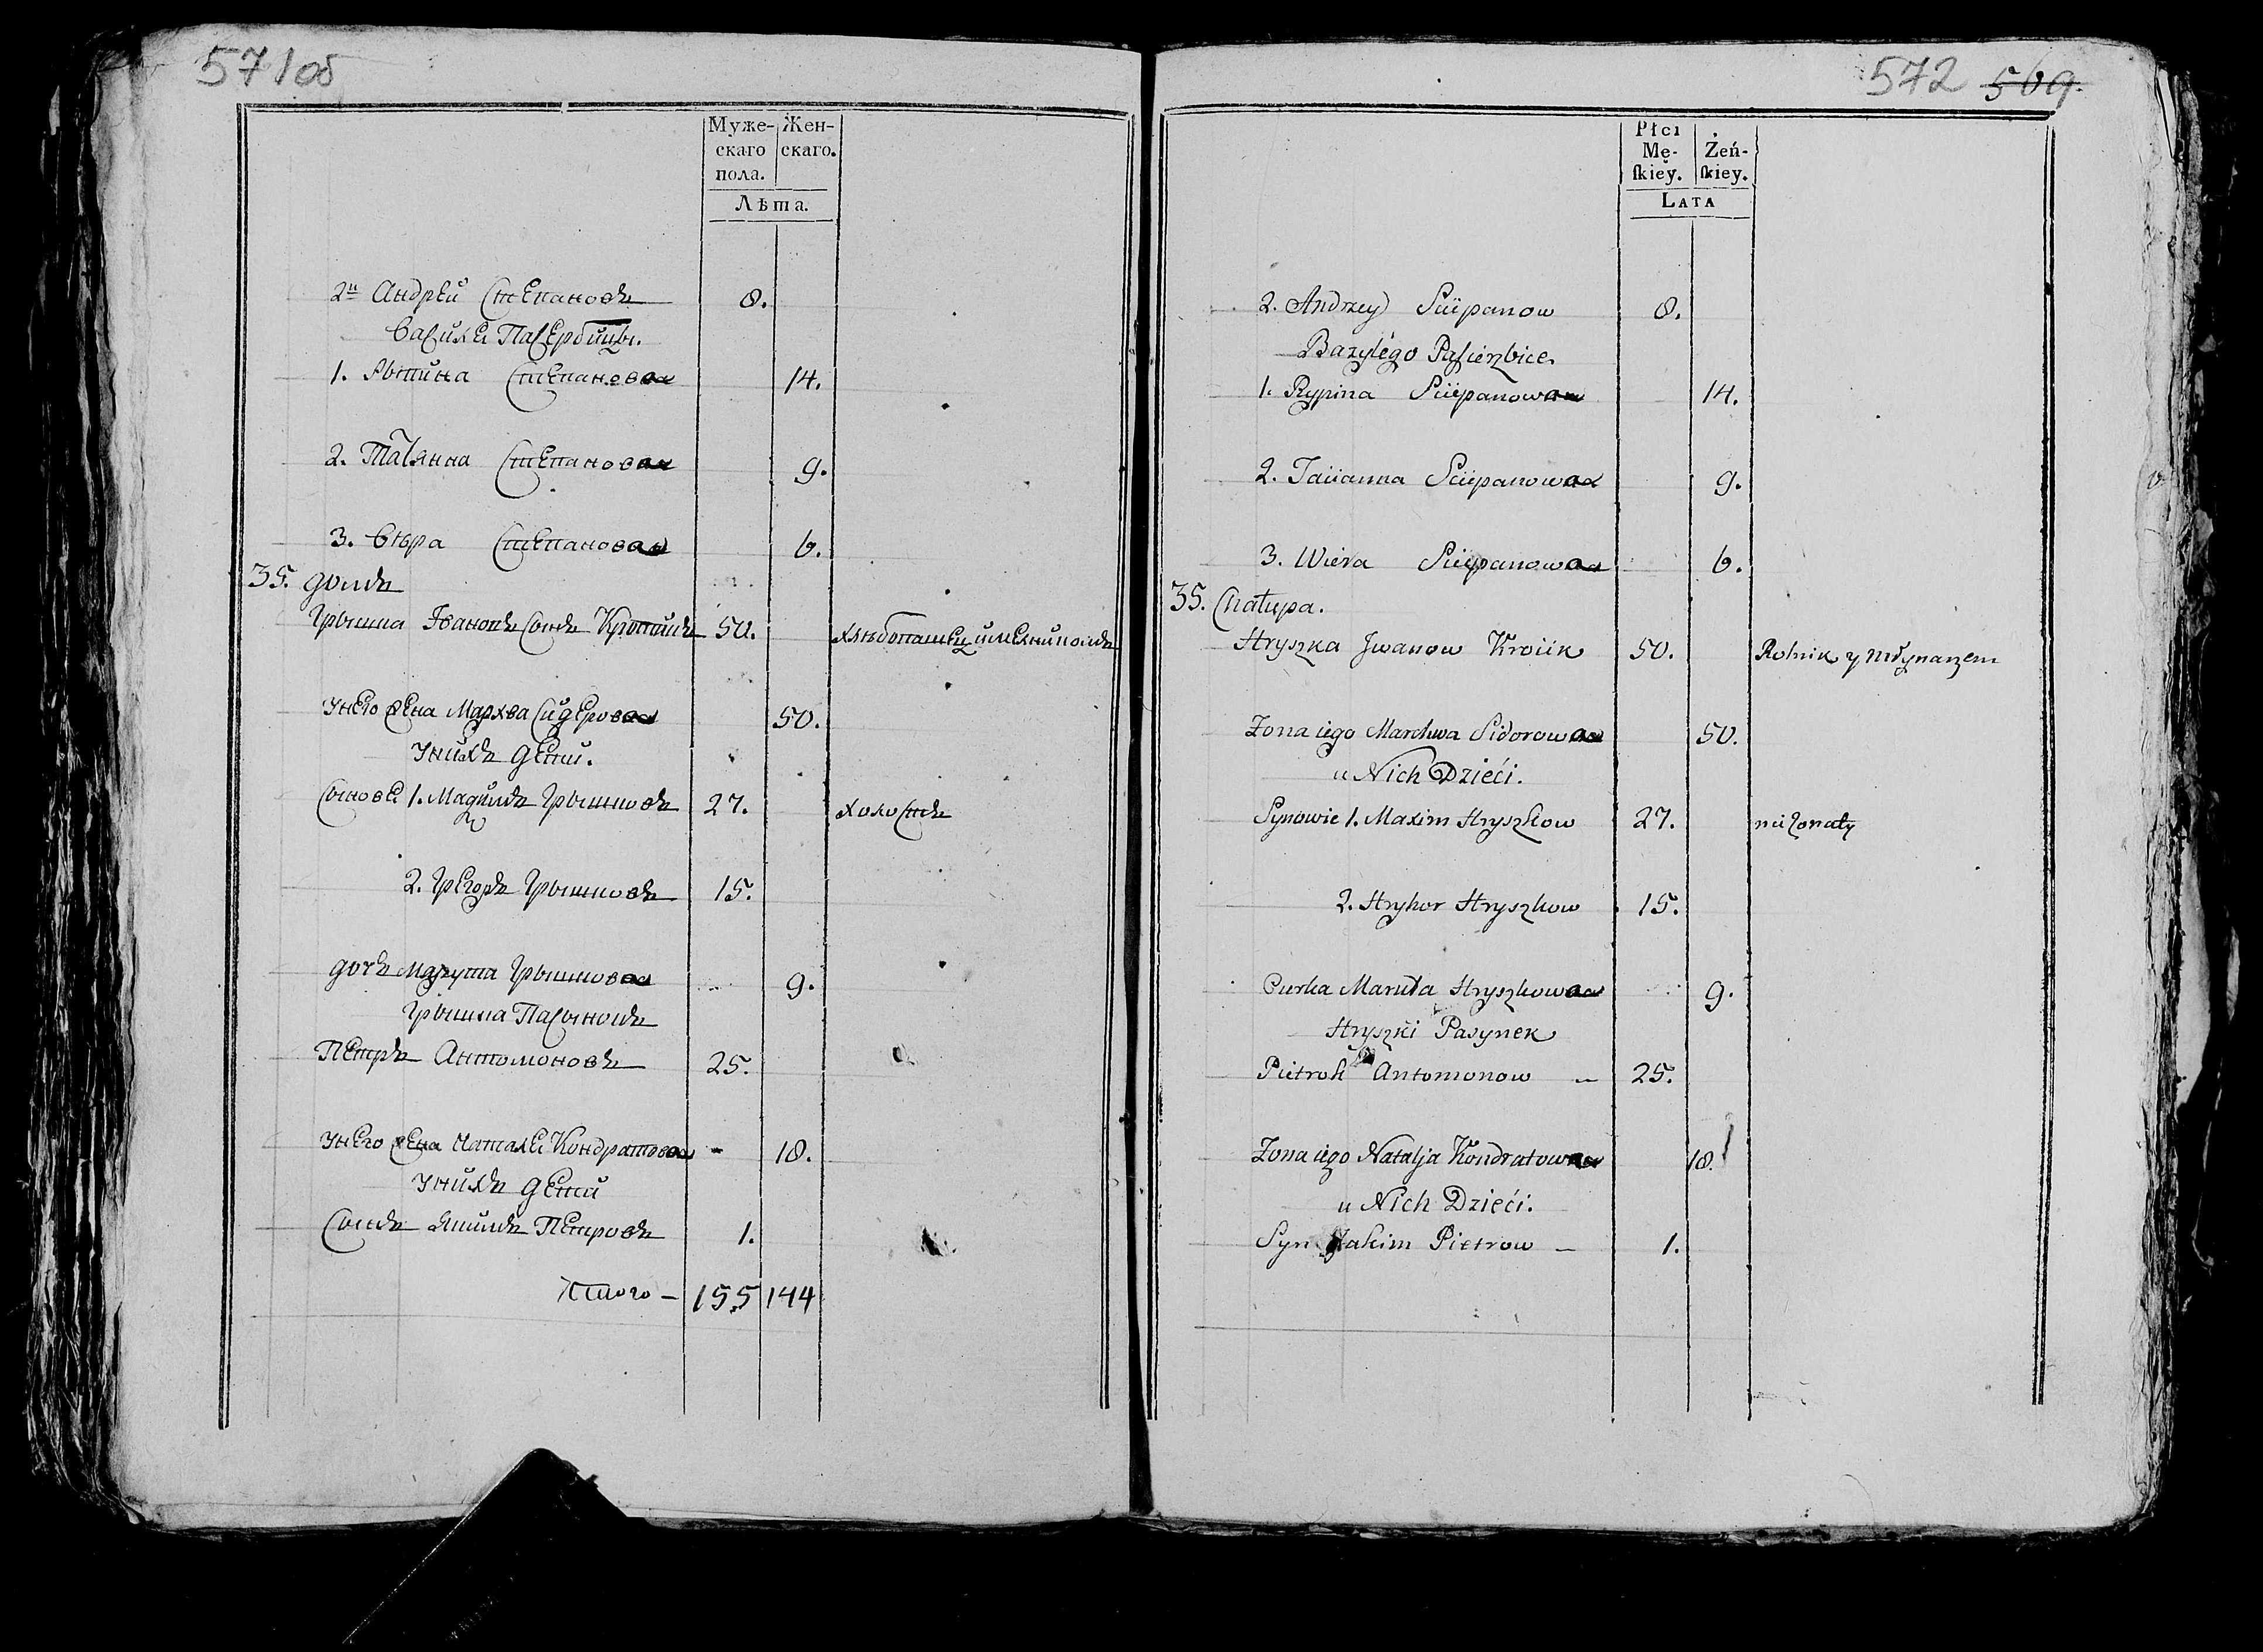 571об
Муже- Жен-
скаго скаго.
пола.
Лѣта.
2й Андрей Степановъ 8.
Василея Пасербицы.
1. Рыпина Степанова 14.
2. Татянна Степанова 9.
3. Вѣра Степанова 6.
35. домъ
Грышка Івановъ Сынъ 50. хлѣбопашец
у него жена Мархва Сидерова 50.
у нихъ дети.
Сыновя 1. Грышковъ 27. холостъ
2. Грегоръ Грышковъ 15.
дочъ Марута Грышкова 9.
Грышка Пасынокъ
Петръ Антомоновъ 25.
у него жена Наталея Кондратова 18.
у нихъ дети
Сынъ Якимъ Петровъ 1.
Итого – 155 144
572 569
Płci
Mę- Żeń-
ſkiey. ſkiey.
LATA
2. Andrzey Sciepanow 8.
Bazylego Pasierzbice.
1. Rypina Sciepanowa 14.
2. Taciianna Sciepanowa 9.
3. Wiera Sciepanowa 6.
35. Chałupa.
Hryszka Jwanow 50. Rolnik y młynarzem
Żona iego Marchwa Sidorowa 50.
u Nich Dzieći.
Synowie 1. Maxim Hryszkow 27. nieżonaty
2. Hryhor Hryszkow 15.
Curka Maruta Hryszkowa 9.
Hryszki Pasynek
Pietrok Antomonow – 25.
Żona iego Natalja Kondratowa 18.
u Nich Dzieći.
Syn Jakim Pietrow – 1.